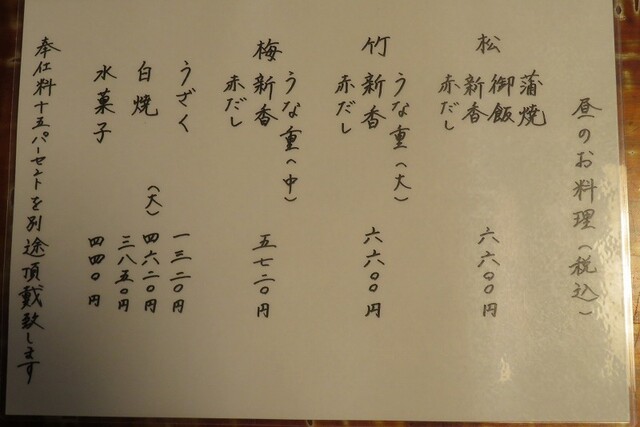 昼のお料理（税込）
松 蒲焼
御飯
新香
赤だし 六六〇〇円
竹 うな重（大）
新香
赤だし 六六〇〇円
梅 うな重（中）
新香
赤だし 五七二〇円
うざく 一三二〇円
白焼 （大）四六二〇円
三八五〇円
水菓子 四四〇円
奉仕料十五パーセントを別途頂戴致します